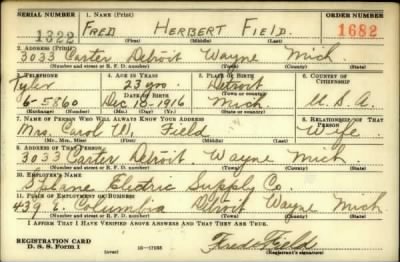 SERIAL NUMBER 1. NAME (Print) ORDER NUMBER
1322 FRED HERBERT FIELD. 1682
(First) (Middle) (Last)
2. ADDRESS (Print)
3033 Carter Detroit Wayne Mich.
(Number and street or R. F. D. number) (Town) (County) (State)
3. TELEPHONE 4. AGE IN YEARS 5. PLACE OF BIRTH 6. COUNTRY OF CITIZENSHIP
Tyler 23 yrs Detroit
DATE OF BIRTH (Town or county)
6-5560 Dec 18-1916 Mich. U.S.A.
(Exchange) (Number) (Mo.) (Day) (Yr.) (State or country)
7. NAME OF PERSON WHO WILL ALWAYS KNOW YOUR ADDRESS 8. RELATIONSHIP OF THAT PERSON
Mrs. Carol W. Field Wife
(Mr., Mrs., Miss) (First) (Middle) (Last)
9. ADDRESS OF THAT PERSON
3033 Carter Detroit Wayne Mich
(Number and street or R. F. D. number) (Town) (County) (State)
10. EMPLOYER'S NAME
Splane Electric Supply Co.
11. PLACE OF EMPLOYMENT OR BUSINESS
439 E. Columbia Detroit Wayne Mich
(Number and street or R. F. D. number) (Town) (County) (State)
I AFFIRM THAT I HAVE VERIFIED ABOVE ANSWERS AND THAT THEY ARE TRUE.
REGISTRATION CARD
D. S. S. Form 1 (over) Fred Field
(Registrant's signature)